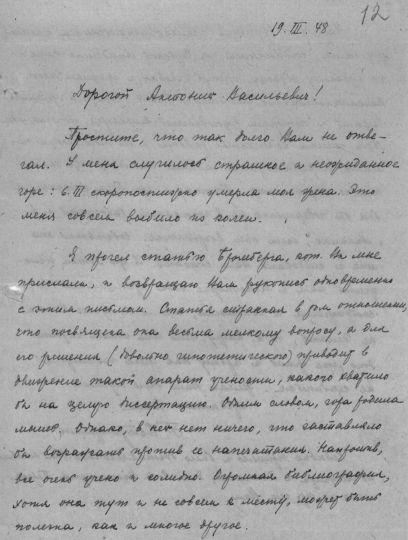 12
19.III.48
Дорогой Антонин Васильевич!
Простите, что так долго Вам не отве-
чал. У меня случилось страшное и неожиданное
горе: 6.III скоропостижно умерла моя жена. Это
меня совсем выбило из колеи.
Я прочел статью Бромберга, кот. Вы мне
прислали, и возвращаю Вам рукопись одновременно
с этим письмом. Статья странная в том отношении,
что посвящена она весьма мелкому вопросу, а для
его решения (довольно гипотетического) приводит в
движение такой апарат учености, какого хватило
бы на целую диссертацию. Одним словом, гора родила
мышь. Однако, в ней нет ничего, что заставляло
бы возражать против ее напечатания. Напротив,
все очень учено и солидно. Огромная библиография,
хотя она тут и не совсем к месту, может быть
полезна, как и многое другое.